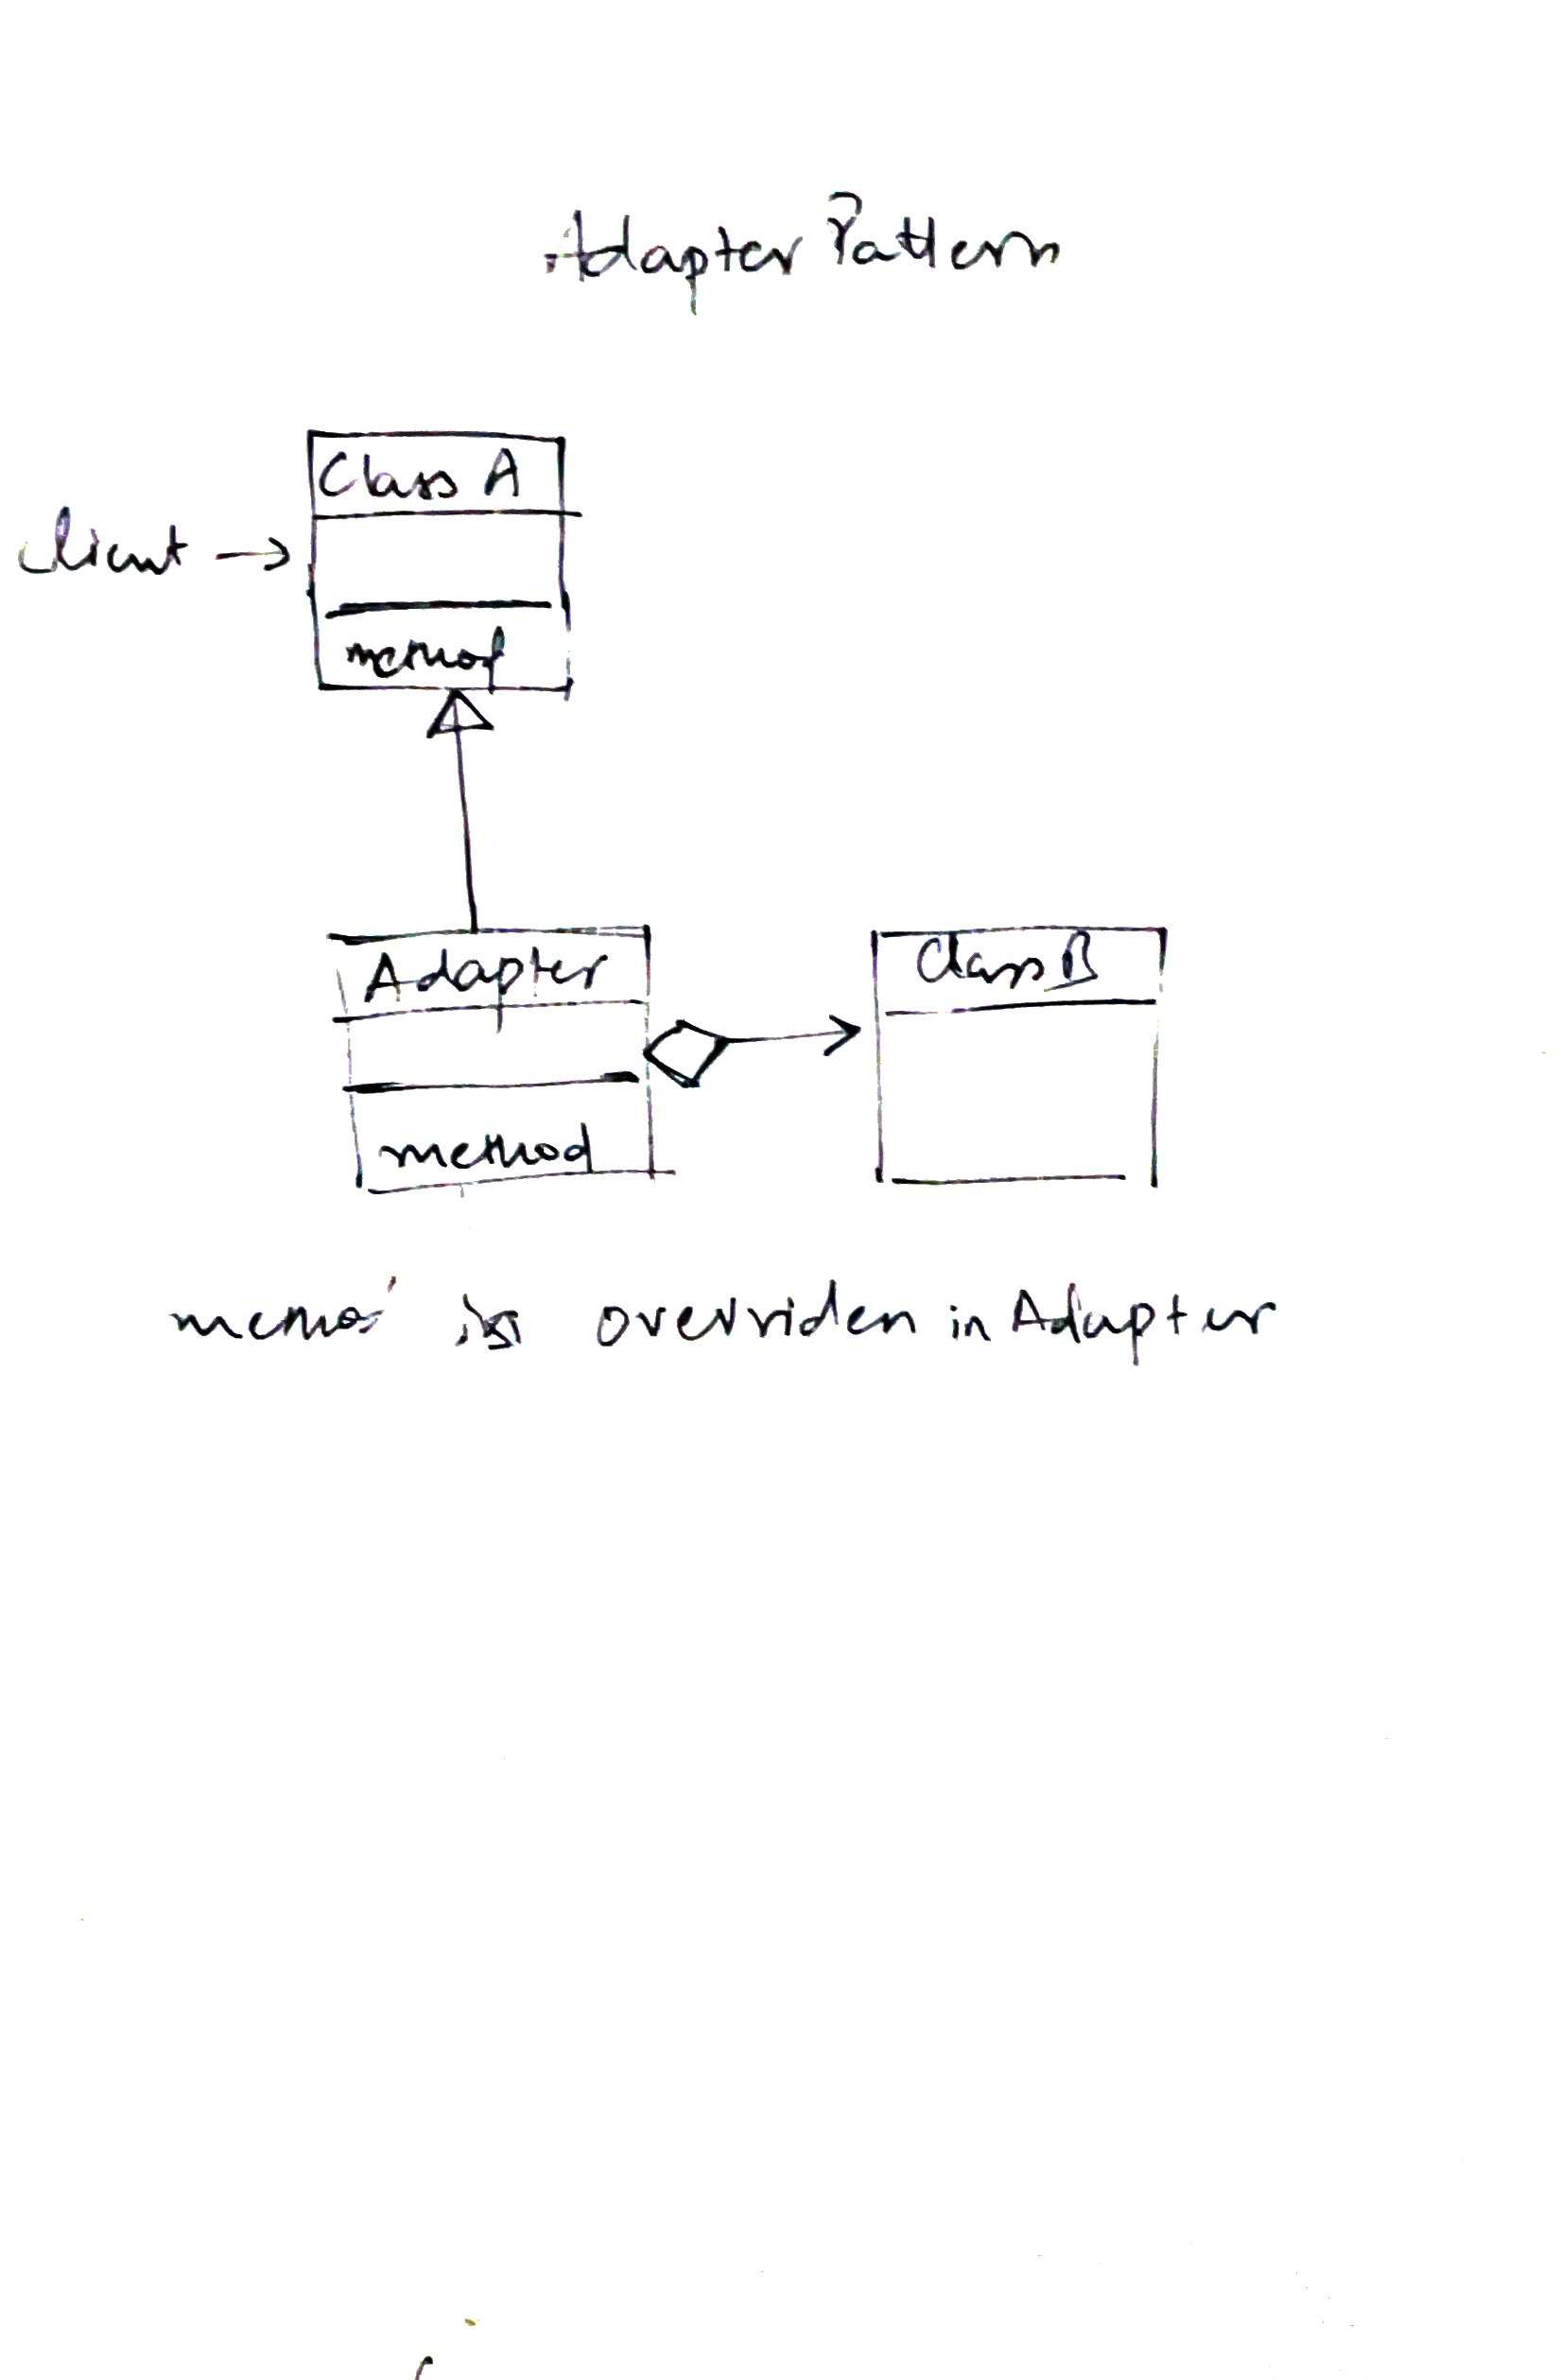 Adapter Pattern
Class A
client →
method
Adapter
Class B
method
method is overriden in Adapter